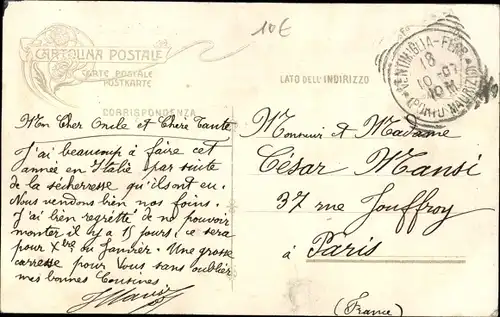 10€
CARTOLINA POSTALE
CARTE POSTALE
POSTKARTE
CORRISPONDENZA
LATO DELL'INDIRIZZO
VENTIMIGLIA-FERR
18
10-07
10M
Mon Cher Oncle et Chère Tante
J'ai beaucoup à faire cet
année en Italie par suite
de la sécherresse qu'ils ont eu.
Nous vendons bien nos foins.
J'ai bien regretté de ne pouvoir
monter il y a 15 jours, ce sera
pour Xbre ou Janvier. Une grosse
caresse pour Vous sans oublier
mes bonnes Cousines
Monsieur et Madame
César Mansi
37 rue Jouffroy
à Paris
(France)